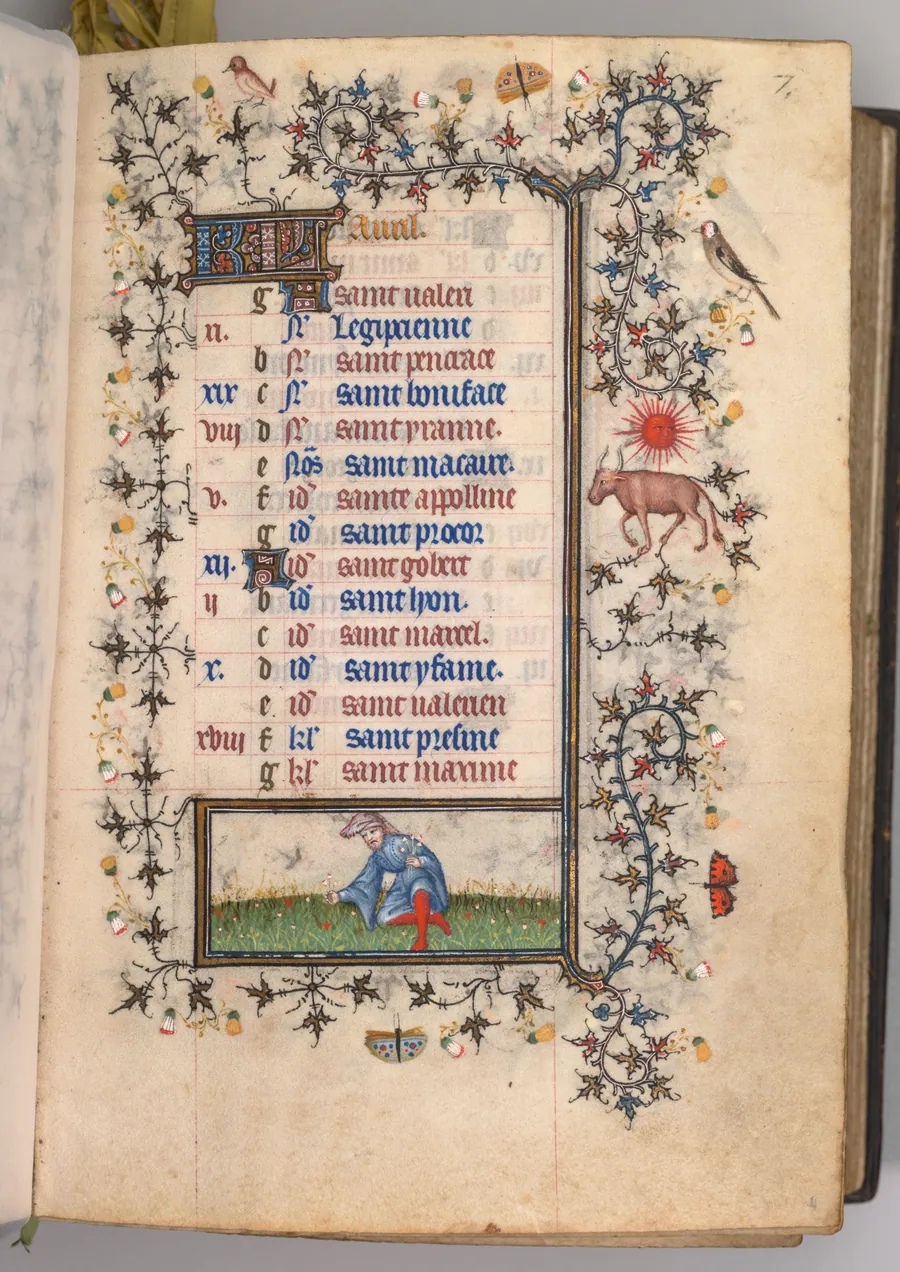 7
KL Auril.
g A saint ualeri
n. N' Legipcienne
b N' saint pancrace
xix c N' saint boniface
viij d N' saint yranne.
e Nos saint macaire.
v. f id' sainte appolline
g id' saint procor
xij. A id' saint gobert
ij b id' saint lyon.
c id' saint marcel.
x. d id' saint yfame.
e id' saint ualerien
xviij f kl' saint presine
g kl' saint maxime
4